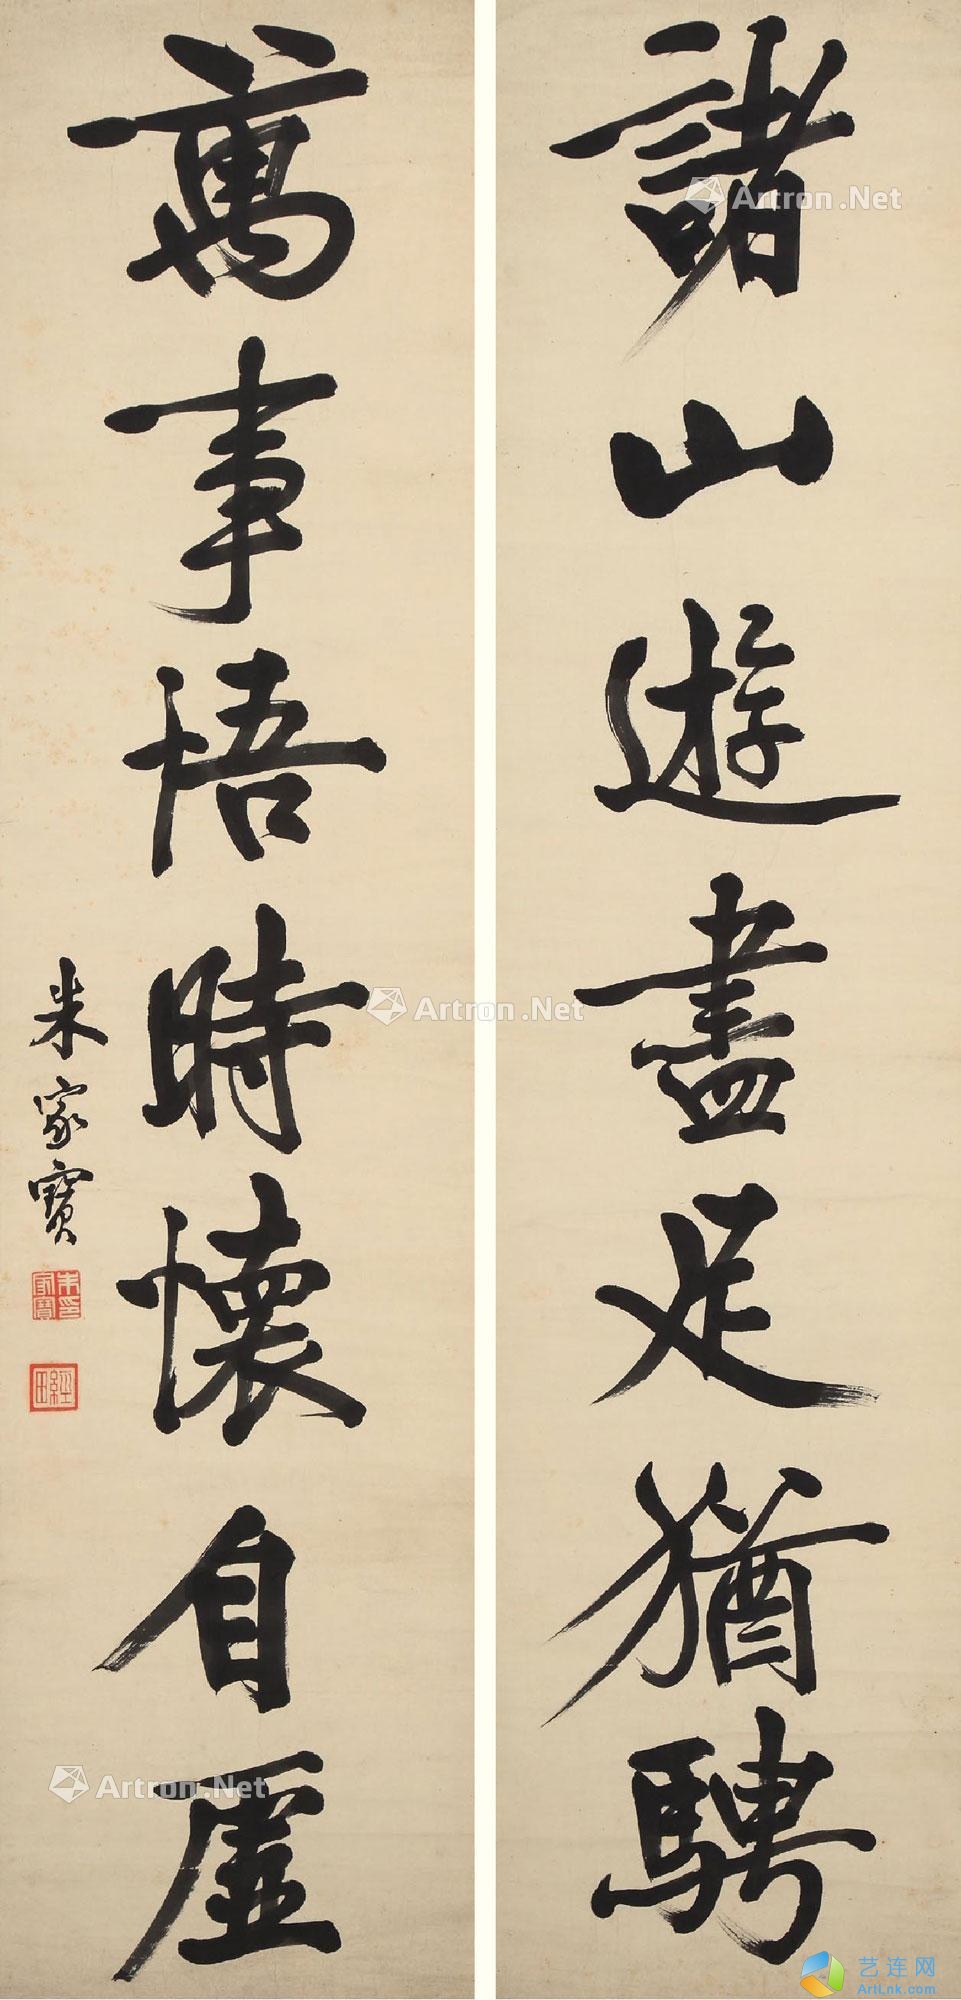 諸山遊盡足猶騁
萬事悟時懷自虛
朱家寶
朱家寶印
經田
Artron.Net
Artron.Net
Artron.Net
艺连网
ArtLnk.com